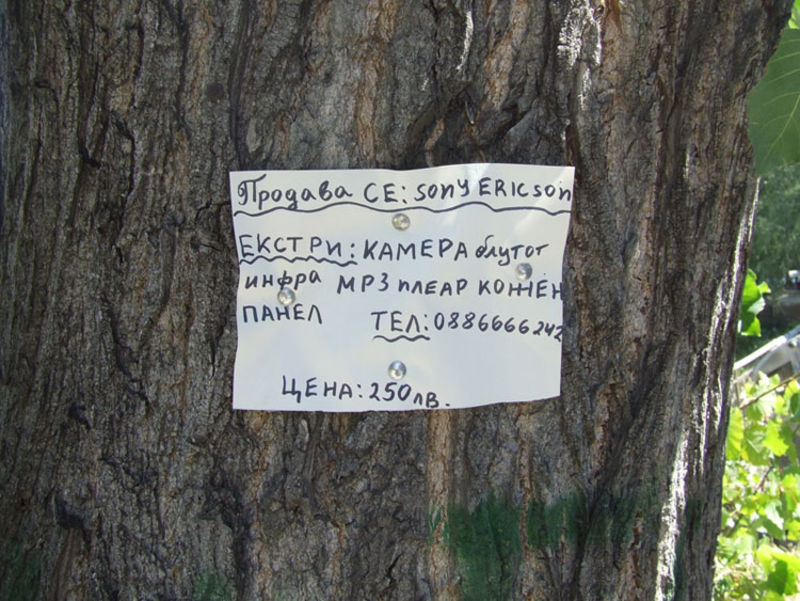 Продава СЕ: SONY ERICSON
ЕКСТРИ: КАМЕРА блутот
инфра МР3 плеар КОЖЕН
ПАНЕЛ ТЕЛ: 0886666242
ЦЕНА: 250 лв.